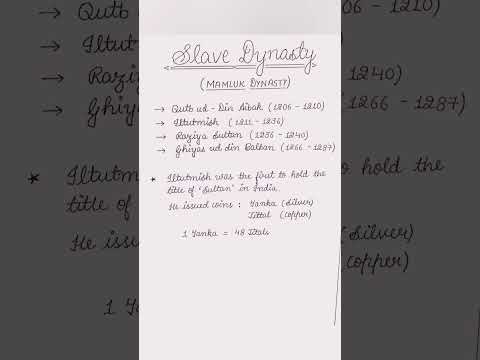 Slave Dynasty
(MAMLUK DYNASTY)
→ Qutb ud - Din Aibak (1206 - 1210)
→ Iltutmish (1211 - 1236)
→ Raziya Sultan (1236 - 1240)
→ Ghiyas ud din Balban (1266 - 1287)
* Iltutmish was the first to hold the
title of 'Sultan' in India.
He issued coins : Tanka (Silver)
Jittal (Copper)
1 Tanka = 48 Jitals